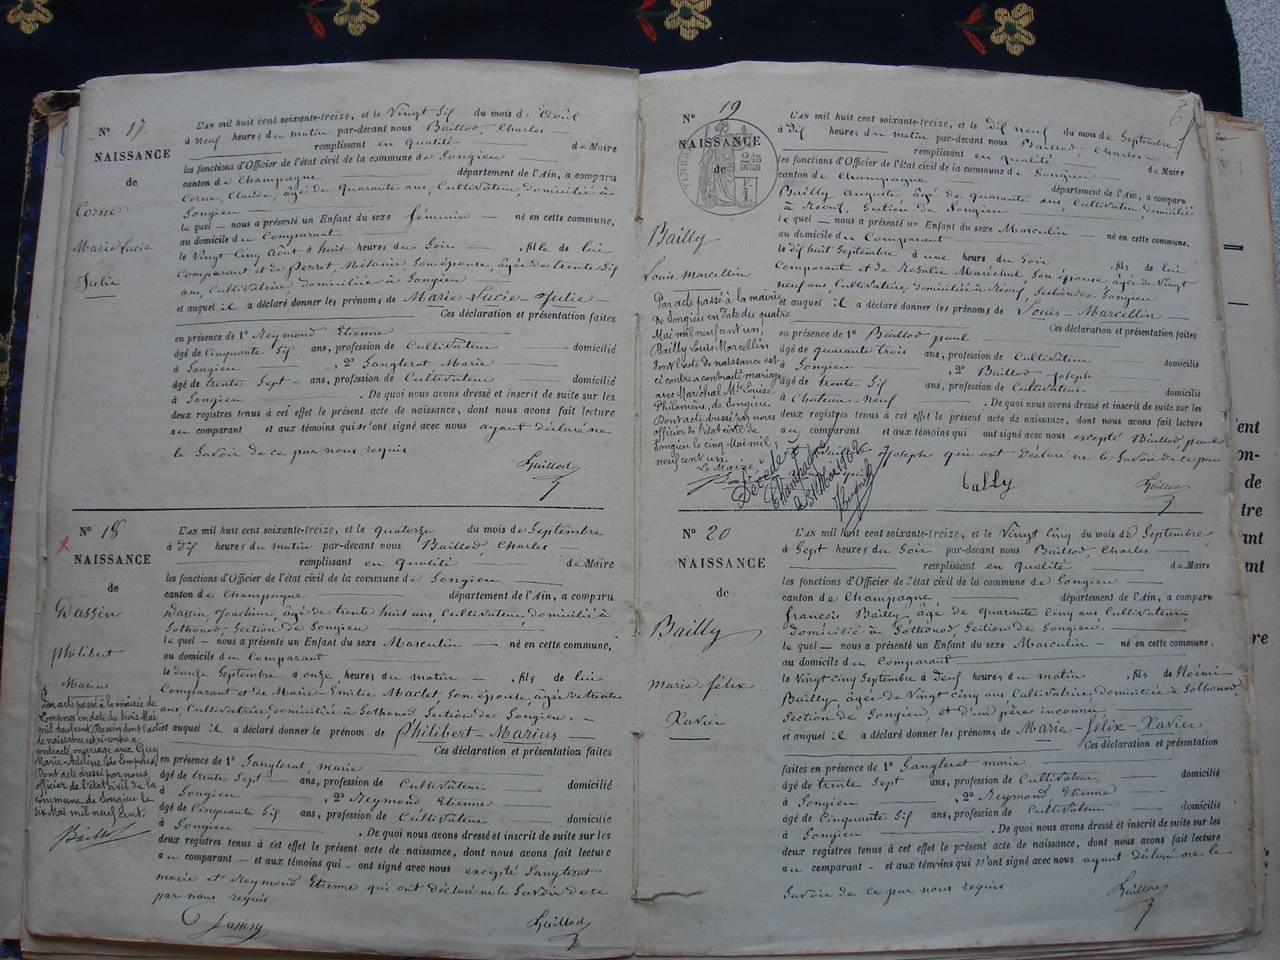 N° 17
NAISSANCE
de
Corne
Marie Lucie
Julie
L'an mil huit cent soixante-treize, et le Vingt Six du mois d'Août
à neuf heures du matin par-devant nous Baillod, Charles
remplissant en qualité de Maire
les fonctions d'Officier de l'état civil de la commune de Songieu
canton de Champagne département de l'Ain, a comparu
Corne, Claude, âgé de quarante ans, Cultivateur domicilié à
Songieu
le quel — nous a présenté un Enfant du sexe féminin — né en cette commune,
au domicile du Comparant
le Vingt Cinq Août à huit heures du Soir — , fille de lui
Comparant et de Perret, Mélanie son épouse, âgée de trente Six
ans, Cultivatrice, domiciliée à Songieu
et auquel il a déclaré donner les prénoms de Marie-Lucie-Julie
Ces déclaration et présentation faites
en présence de 1° Reymond Etienne
âgé de Cinquante Six ans, profession de Cultivateur domicilié
à Songieu , 2° Sanglerat, Marie
âgé de trente Sept — ans, profession de Cultivateur domicilié
à Songieu . De quoi nous avons dressé et inscrit de suite sur les
deux registres tenus à cet effet le présent acte de naissance, dont nous avons fait lecture
au comparant — et aux témoins qui n'ont signé avec nous ayant déclaré ne
le Savoir de ce par nous requis
Baillod
N° 18
NAISSANCE
de
Dassin
Philibert
Marius
Par acte passé à la mairie de
Lompnes en date du trois Mai
mil neuf cent, Dassin dont l'acte
de naissance est ci-contre a
contracté mariage avec Guy
Marie-Adeline (de Lompnes)
Dont acte dressé par nous
officier de l'état civil de la
commune de Songieu le
six Mai mil neuf cent.
L'an mil huit cent soixante-treize, et le quatorze du mois de Septembre
à dix heures du matin par-devant nous Baillod, Charles
remplissant en qualité de Maire
les fonctions d'Officier de l'état civil de la commune de Songieu
canton de Champagne département de l'Ain, a comparu
Dassin, Joachim, âgé de trente huit ans, Cultivateur, domicilié à
Sothonod, Section de Songieu
le quel — nous a présenté un Enfant du sexe Masculin — né en cette commune,
au domicile du Comparant
le douze Septembre à onze heures du matin — , fils de lui
Comparant et de Marie-Emilie Maclet, son épouse, âgée de trente
ans, Cultivatrice, domiciliée à Sothonod Section de Songieu. —
et auquel il a déclaré donner le prénom de Philibert-Marius
Ces déclaration et présentation faites
en présence de 1° Sanglerat marie
âgé de trente Sept — ans, profession de Cultivateur domicilié
à Songieu , 2° Reymond Etienne
âgé de Cinquante Six — ans, profession de Cultivateur domicilié
à Songieu . De quoi nous avons dressé et inscrit de suite sur les
deux registres tenus à cet effet le présent acte de naissance, dont nous avons fait lecture
au comparant — et aux témoins qui — ont signé avec nous excepté Sanglerat
marie et Reymond Etienne qui ont déclaré ne le Savoir de ce
par nous requis
Dassin
Baillod
N° 19
NAISSANCE
de
Bailly
Louis Marcellin
Par acte passé à la mairie
de Songieu en date du quatre
Mai mil neuf cent un,
Bailly Louis Marcellin
dont l'acte de naissance est
ci contre a contracté mariage
avec Maréchal Mie Louise
Philomène, de Songieu
Dont acte dressé par nous
officier de l'état civil de
Songieu le cinq Mai mil
neuf cent un.
Le Maire
Décédé à
Champagne
L'an mil huit cent soixante-treize, et le dix neuf du mois de Septembre
à dix heures du matin par-devant nous Baillod, Charles
remplissant en qualité de Maire
les fonctions d'Officier de l'état civil de la commune de Songieu
canton de Champagne département de l'Ain, a comparu
Bailly Auguste, âgé de quarante ans, Cultivateur, domicilié
Section de Songieu
le quel — nous a présenté un Enfant du sexe Masculin — né en cette commune,
au domicile du Comparant
le dix huit Septembre à une heure du Soir , fils de lui
Comparant et de Rosalie Maréchal, son épouse, âgée de Vingt
neuf ans, Cultivatrice, domiciliée Section de Songieu
et auquel il a déclaré donner les prénoms de Louis-Marcellin
Ces déclaration et présentation faites
en présence de 1° Baillod paul
âgé de quarante trois ans, profession de Cultivateur domicilié
à Songieu , 2° Baillod Joseph
âgé de trente Six ans, profession de Cultivateur domicilié
à Chateau neuf . De quoi nous avons dressé et inscrit de suite sur les
deux registres tenus à cet effet le présent acte de naissance, dont nous avons fait lecture
au comparant et aux témoins qui ont signé avec nous excepté Baillod, paul
Joseph qui ont déclaré ne le Savoir de ce par
Bally
Baillod
N° 20
NAISSANCE
de
Bailly
Marie félix
Xavier
L'an mil huit cent soixante-treize, et le Vingt Cinq du mois de Septembre
à Sept heures du Soir par-devant nous Baillod, Charles
remplissant en qualité de Maire
les fonctions d'Officier de l'état civil de la commune de Songieu
canton de Champagne département de l'Ain, a comparu
françois Bailly, âgé de quarante Cinq ans, Cultivateur,
domicilié à Sothonod, Section de Songieu.
le quel — nous a présenté un Enfant du sexe Masculin — né en cette commune,
au domicile du Comparant
le Vingt Cinq Septembre à Neuf heures du matin , fils de Noémi
Bailly, âgée de Vingt Cinq ans, Cultivatrice, domiciliée à Sothonod
Section de Songieu, et d'un père inconnu
et auquel il a déclaré donner les prénoms de Marie-Félix-Xavier
Ces déclaration et présentation
faites en présence de 1° Sanglerat marie
âgé de trente Sept ans, profession de Cultivateur domicilié
à Songieu , 2° Reymond Etienne
âgé de Cinquante Six ans, profession de Cultivateur domicilié
à Songieu . De quoi nous avons dressé et inscrit de suite sur les
deux registres tenus à cet effet le présent acte de naissance, dont nous avons fait lecture
au comparant — et aux témoins qui n'ont signé avec nous ayant déclaré ne le
Savoir de ce par nous requis
Baillod